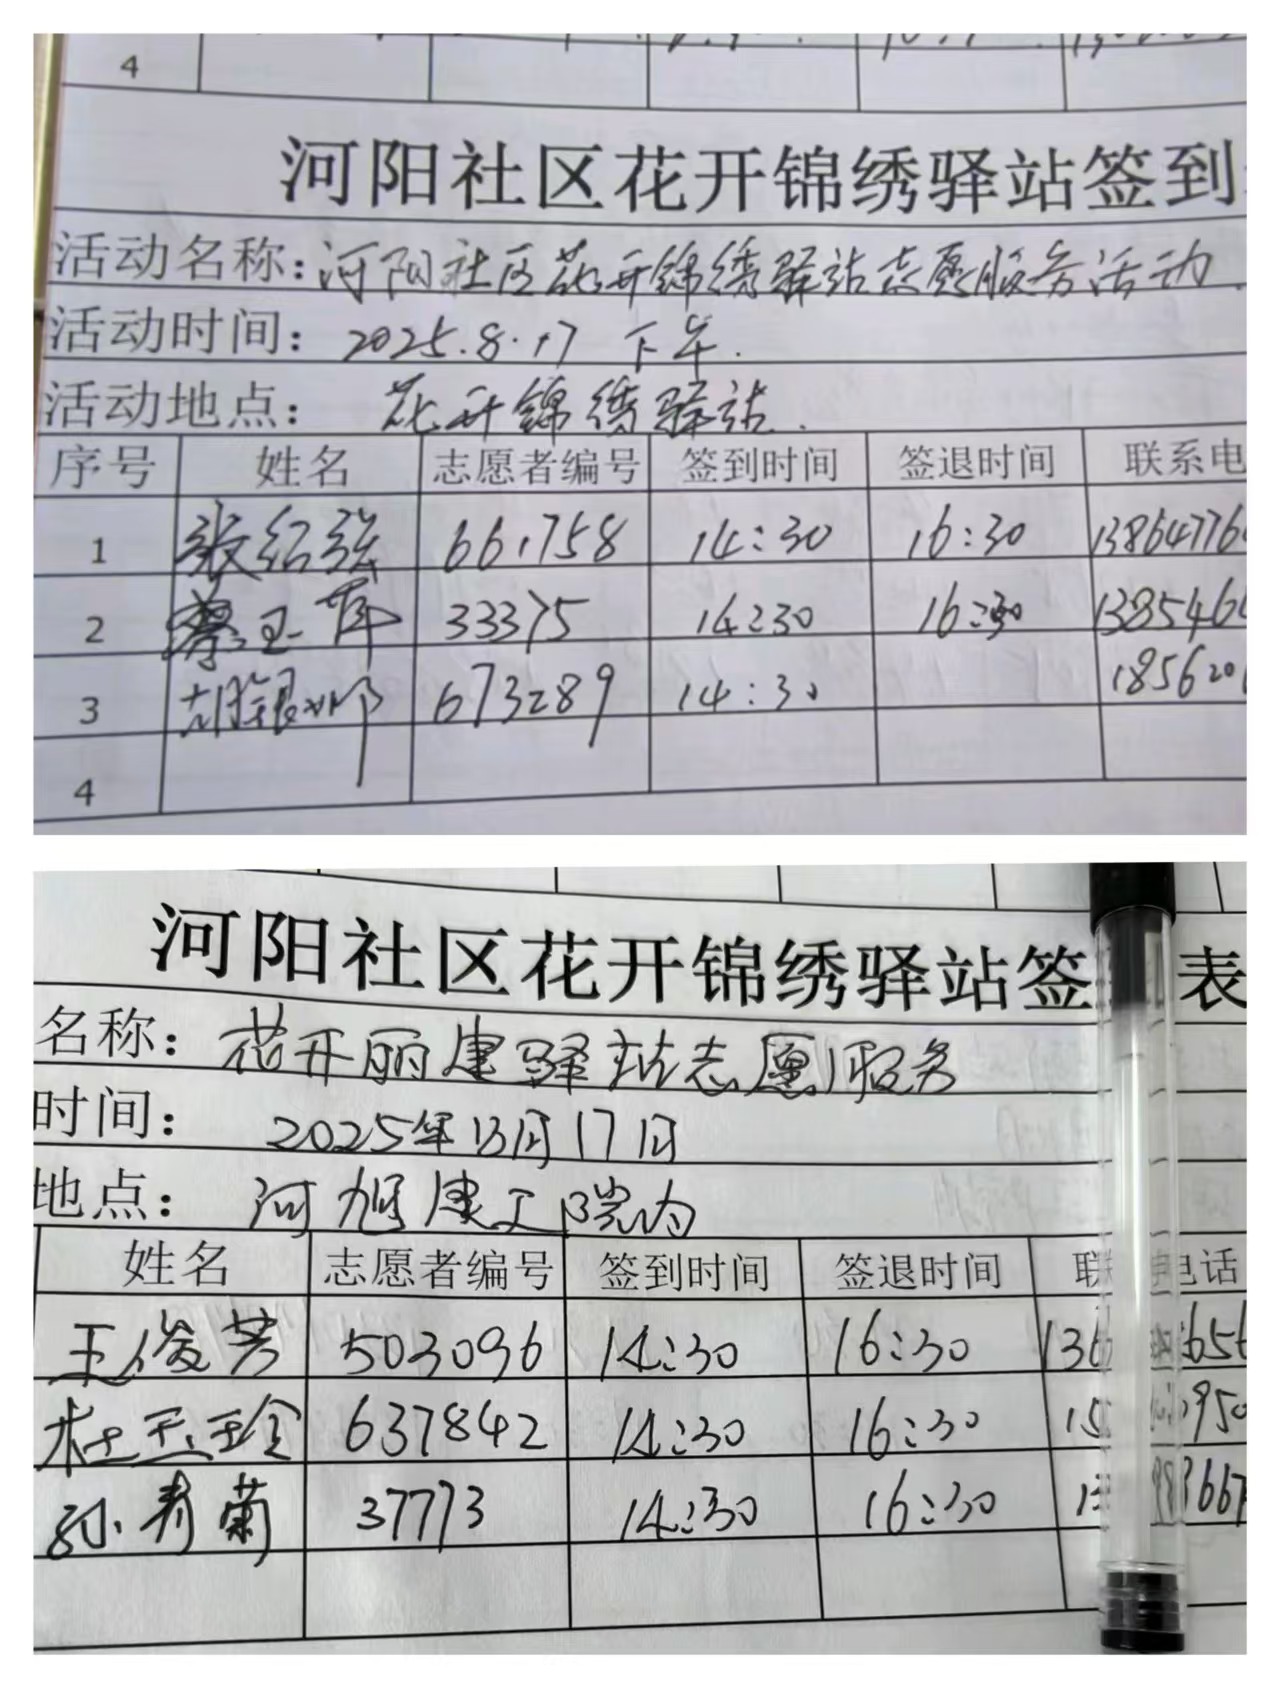 4
河阳社区花开锦绣驿站签到
活动名称：河阳社区花开锦绣驿站志愿服务活动.
活动时间：2025.8.17 下午.
活动地点：花开锦绣驿站.
序号 姓名 志愿者编号 签到时间 签退时间 联系电
1 张绍强 661758 14:30 16:30 13864776
2 33375 14:30 16:30 1385466
3 673289 14:30 1856201
4
河阳社区花开锦绣驿站签 表
名称：花开丽建驿站志愿服务
时间：2025年8月17日
地点：河旭建工院内
姓名 志愿者编号 签到时间 签退时间 联 电话
王俊芳 503096 14:30 16:30 136 656
杜玉玲 637842 14:30 16:30 15 950
孙秀菊 37773 14:30 16:30 13 3667